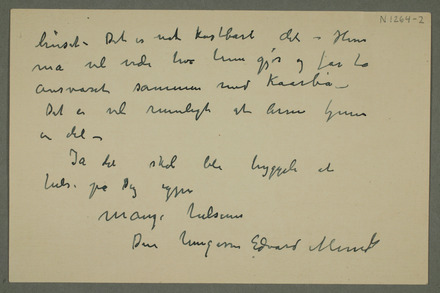 N 1264-2
huset – Det er nok kostbart det – Hun
må vel vide hva hun gjør og får ta
ansvaret sammen med Kaarbø –
Det er vel rimeligt at hun
er det –
Ja det skal bli hyggelig at
hilse på Dig igjen
Mange hilsener
Din hengivne Edvard Munch